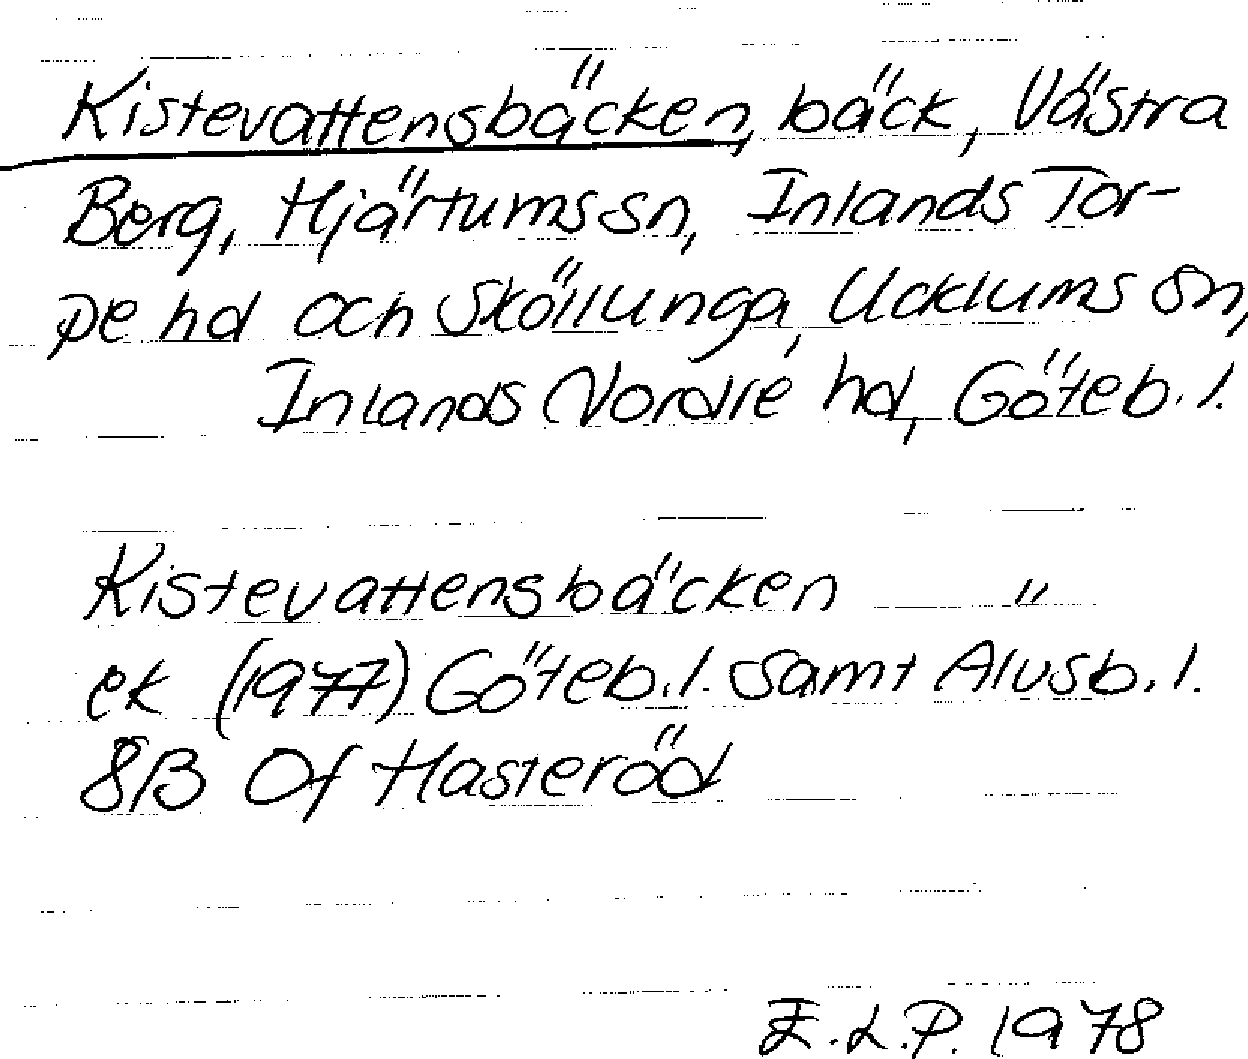 Kistevattensbäcken, bäck, Västra
Berg, Hjärtums sn, Inlands Tor-
pe hd och Sköllunga, Ucklums sn,
Inlands Nordre hd, Göteb. l.
Kistevattensbäcken "
ek (1977) Göteb. l. samt Älvsb. l.
8B 0f Hasteröd
E.L.P. 1978